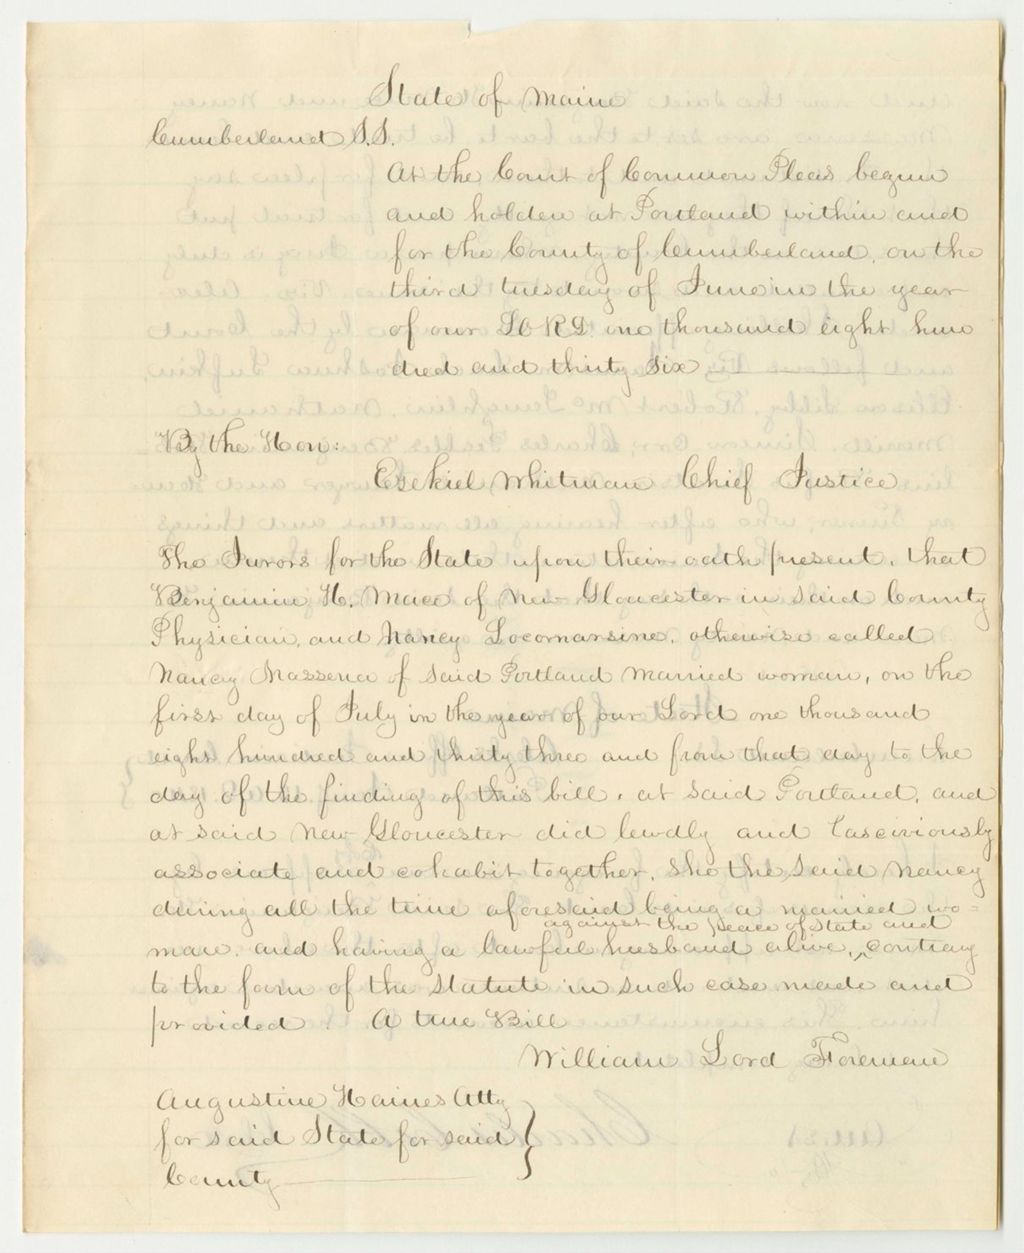 State of Maine
Cumberland S.S.
At the Court of Common Pleas begun
and holden at Portland within and
for the County of Cumberland, on the
third tuesday of June in the year
of our LORD one thousand eight hun
dred and thirty six
By the Hon:
Ezekiel Whitman Chief Justice
The Jurors for the State upon their oath present, that
Benjamin H. Mace of New Gloucester in said County
Physician, and Nancy Locomarsine, otherwise called
Nancy Massena of said Portland married woman, on the
first day of July in the year of our Lord one thousand
eight hundred and thirty three and from that day to the
day of the finding of this bill, at said Portland, and
at said New Gloucester did lewdly and lasciviously
associate and cohabit together, she the said Nancy
during all the time aforesaid being a married wo-
against the peace of state and
man and having a lawful husband alive, ^ contrary
to the form of the statute in such case made and
provided. A true Bill
William Lord Foreman
Augustine Haines Atty
for said State for said
County